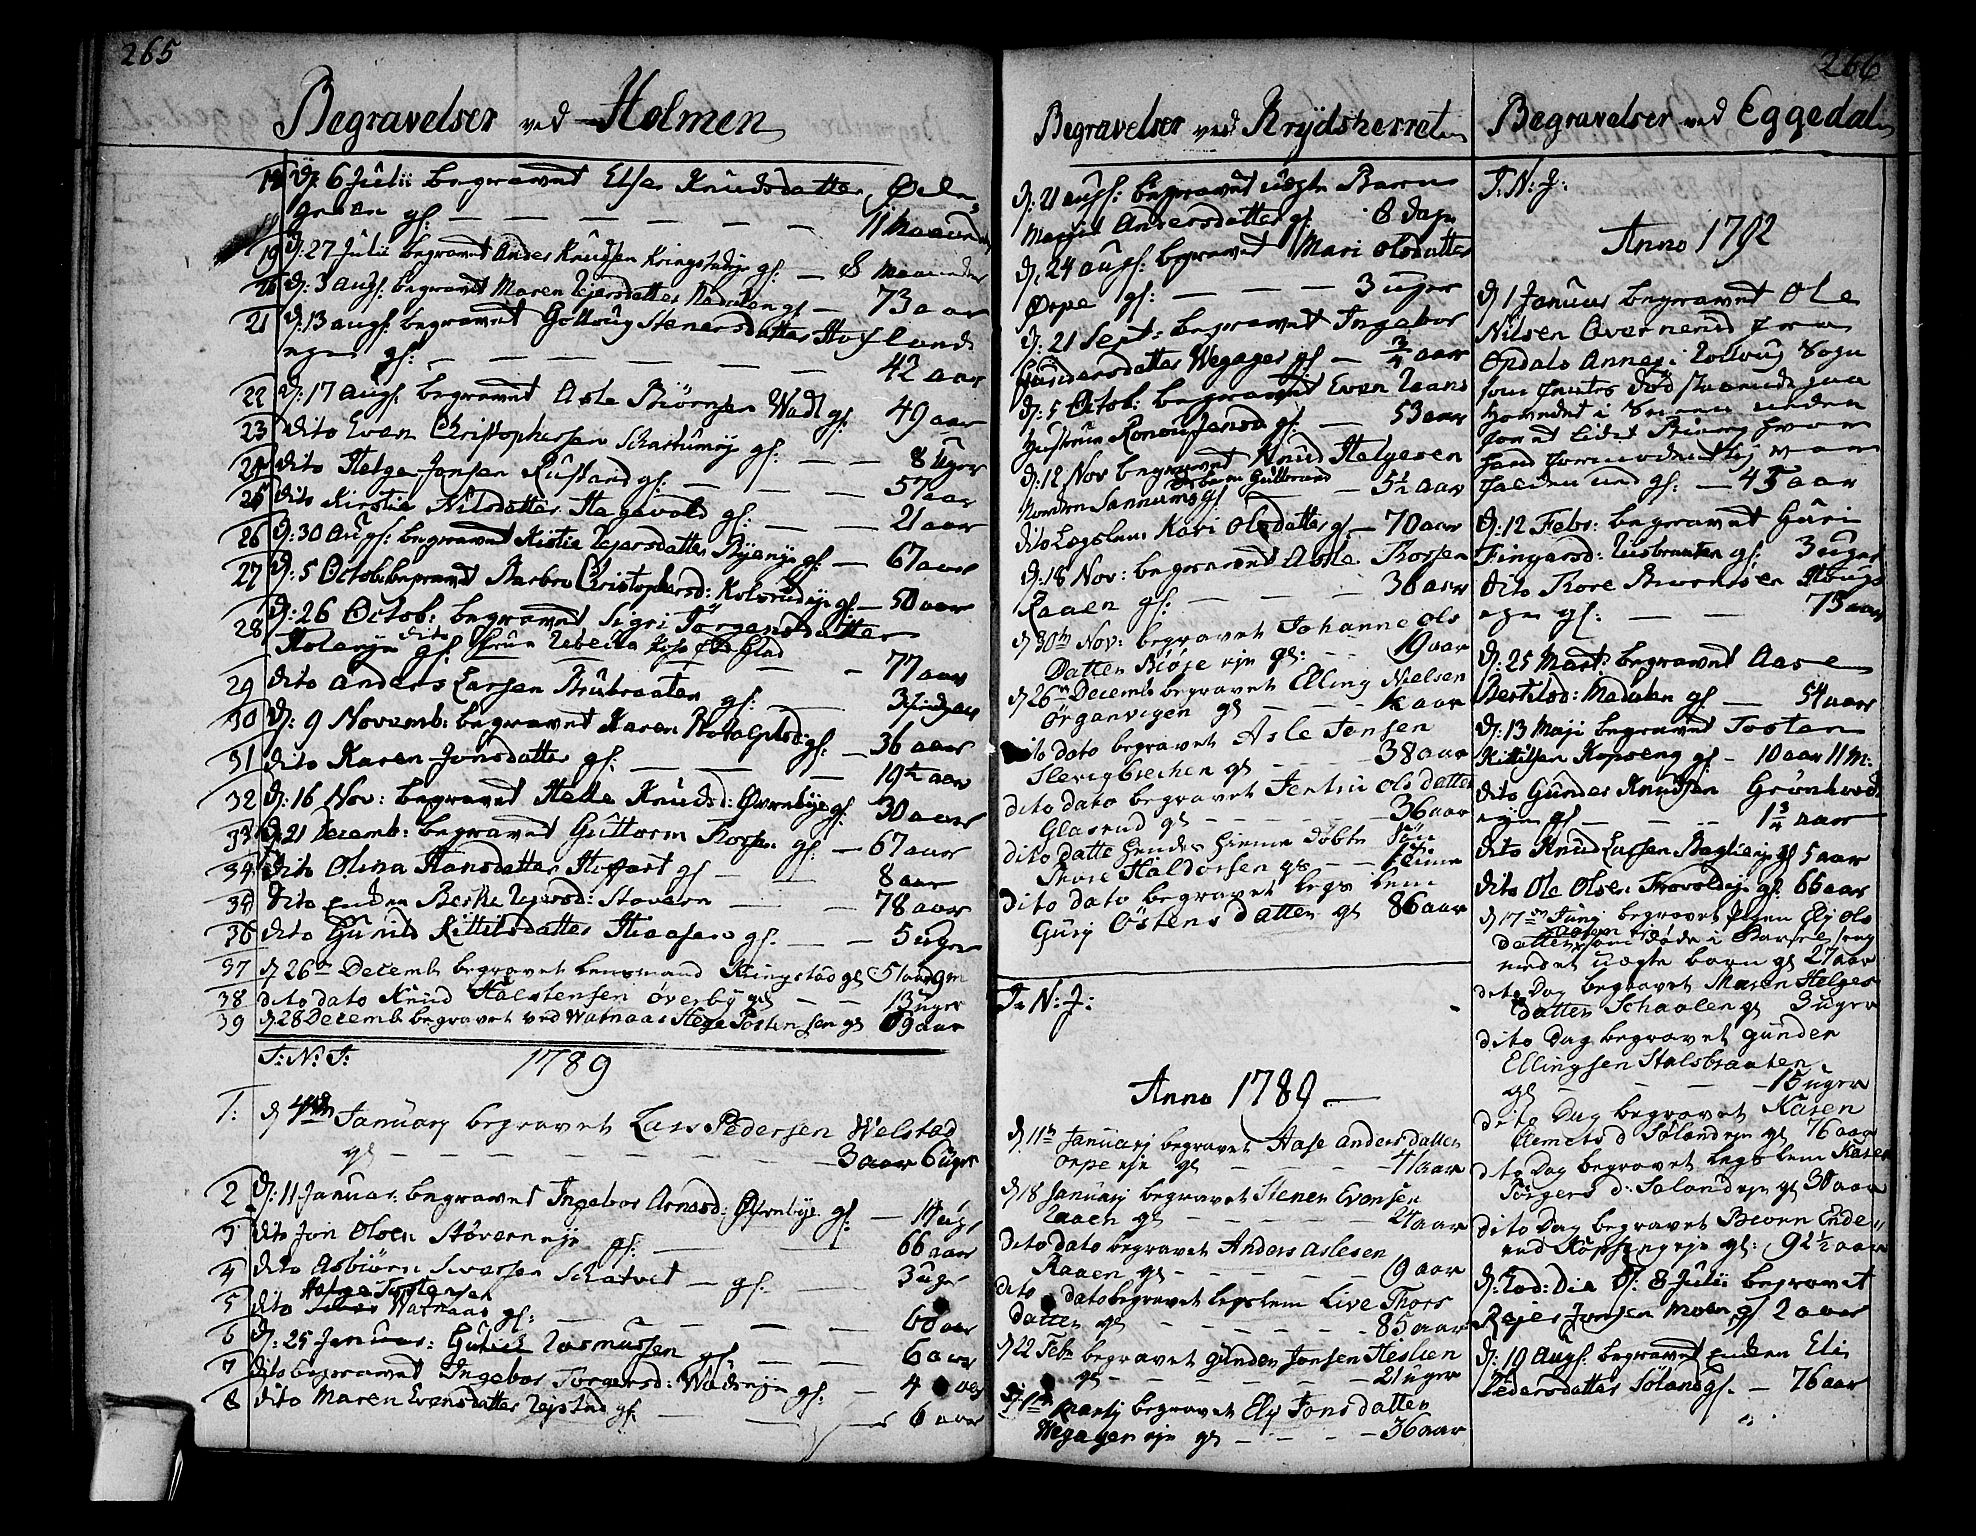 265
Begravelser ved Holmen
18 d: 6 Julii begravet Else Knudsdatter Øde
gs: — — — — 11 Maaneder
19 d: 27 Julii begravet Anders Knudsen Kringstadeje gs: — 8 Maaneder
20 d: 3 Augs: begravet Maren Ejersdatter Nadalen gs — 73 aar
21 d: 13 augs: begravet Guttrug Stenersdatter Hofland
ejen gs: — — — — 42 aar
22 d: 17 augs: begravet Asle Biørnsen Wadl gs: 49 aar
23 dito Even Christophersen Skartumeje gs: — — 8 Uger
24 dito Helge Jonsen Rustand gs: — — — 57 aar
25 dito Kirstie Nilsdatter Hagavold gs: — — 21 aar
26 d: 30 Augs: begravet Kistie Ejersdatter Byeneje gs: — 67 aar
27 d: 5 Octob: begravet Barbro Christophersd: Kolsrudeje gs — 50 aar
28 d: 26 Octob: begravet Sigri Jörgensdatter
Kolereje gs: — 77 aar
29 dito Anders Larsen Strubraaten gs: —
30 d: 9 Novemb: begravet Karen gs: — 36 aar
31 dito Karen Jonsdatter gs: — — — 19½ aar
32 d: 16 Nov: begravet Helle Knudsd: Øvernbye gs: 30 aar
33 d: 21 Decemb: begravet Guttorm gs: — 67 aar
34 dito Olina Hansdatter Hoffart gs — — 8 aar
35 dito Enken Berthe Ejersd: Stovern — — 78 aar
36 dito Gunild Kittilsdatter Haasen gs: — — 5 uger
37 d 26de Decemb begravet Lensmand Kringstad gs 51 aar 9 m
38 dito dato Knud Halstensen Øverby gs — — 13 uger
39 d 28 Decemb begravet ved Watnaas Hege Tostensen gs 69 aar
I: N: I: 1789
1: d 4de Januarj begravet Lars Pedersen Welstad
gs — — — — — — 3 aar 6 uger
2 d: 11 Januar: begravet Ingebor Arnesd: Øvrnbye gs: — 14 ugr
3 dito Jon Olsen Støverneje gs: — — 66 aar
4 dito Asbiörn Iversen Skatvet — gs: — — 3 uger
Helge Tostensen
5 dito Watnaas gs: — — — 60 aar
6 d: 25 Januar: Gunild Rasmussen gs — — 6 aar
7 dito begravet Ingebor Torgersd: Wadseje gs: — 4 aar
8 dito Maren Evensdatter Ejstad gs: — — 6 aar
266
Begravelser ved Krydsherret
d: 21 augs: begravet uægte Barn
Margit Andersdatter gs: 8 dage
d: 24 augs: begravet Mari Olsdatter
Ørpe gs: — — — 3 uger
d: 21 Sept: begravet Ingebor
Gundersdatter Wegager gs — ¾ aar
d: 5 Octob: begravet Even Raaens
Hustrue Ronou Jensd gs: — 53 aar
d: 12 Nov begravet Knud Helgesen
gs — — 5½ aar
dito Legslem Kari Olsdatter gs — 70 aar
d: 18 Nov: begravet Asle
Raaen gs: — — — 36 aar
d 30te Nov: begravet Johanne Ols
Datter Bløje eje gs: — — 19 aar
d 26de Decemb begravet Elling Nielsen
Ørganvigen gs — — — ½ aar
dito dato begravet Asle Jensen
Slevigbrechen gs — — — 38 aar
dito dato begravet Jentni Olsdatter
Glasrud gs — — — — 36 aar
dito datte hendes hieme døbte søn
Haldorsen gs — — 1 time
dito dato begravet legs lem
Gurj Östensdatter gs 86 aar
I: N: J:
Anno 1789 —
d 11te Januarj begravet Aase Andersdatter
orpe eje gs — — — — 41 aar
d 18 Januarj begravet Stener Evensen
Raaen gs — — — — 24 aar
dito dato begravet Anders Aslesen
Raaen gs — — — — 19 aar
dito dato begravet legslem Live Thors
datter gs — — — — 85 aar
d 22 Febr begravet Gunder Jonsen Heslien
gs — — — — — 21 uger
Martj begravet Elj Jonsdatter
Wegager eje gs — — — — 36 aar
Begravelser ved Eggedal
I: N: J:
Anno 1792
d 1 Januar begravet Ole
Nilsen Overnerud fra
Opdals Annex i Rolloug Sogn
som fantes død staaende paa
Hovedet i Sneen neden
for et lidet Bierg hvor
hand formodentlig var
falden ud gs: — 45 aar
d: 12 Febr: begravet Guri
Fingarsd: Eisbraaten gs: 3 uger
dito Tore Haugs
ejen gs: — — — 75 aar
d: 25 Mart: begravet Aase
Bertilsd: Nadalen gs — 54 aar
d: 13 Maji begravet Tosten
Kittilsen Kopseng gs — 10 aar 11 m:
dito Gunder Knudsen Grönhovd
ejen gs — — — 1¾ aar
dito Knud Larsen Baglieje gs 5 aar
dito Ole Olsen Frovoldeje gs: 66 aar
d 17de Junj begravet Pigen Elj Ols
datter som døde i Barsel seng
medet uægte barn gs 27 aar
dito Dag begravet Maren Helges
datter Schaalen gs 3 uger
dito Dag begravet Gunder
Ellingsen Stalsbraaten
gs — — — — 15 uger
dito Dag begravet Karen
Aemets d Sølandeje gs 76 aar
dito Dag begravet Legslem Karen
Törgers d: Solandeje gs 30 aar
dito Dag begravet Biorn Ende
rud Kopsengeje gs: 92½ aar
d: Eod: Die d: 8 Julii begravet
Rejer Jonsen Moen gs 2 aar
d: 19 Augs: begravet Enken Eli
Pedersdatter Söland gs. — 76 aar